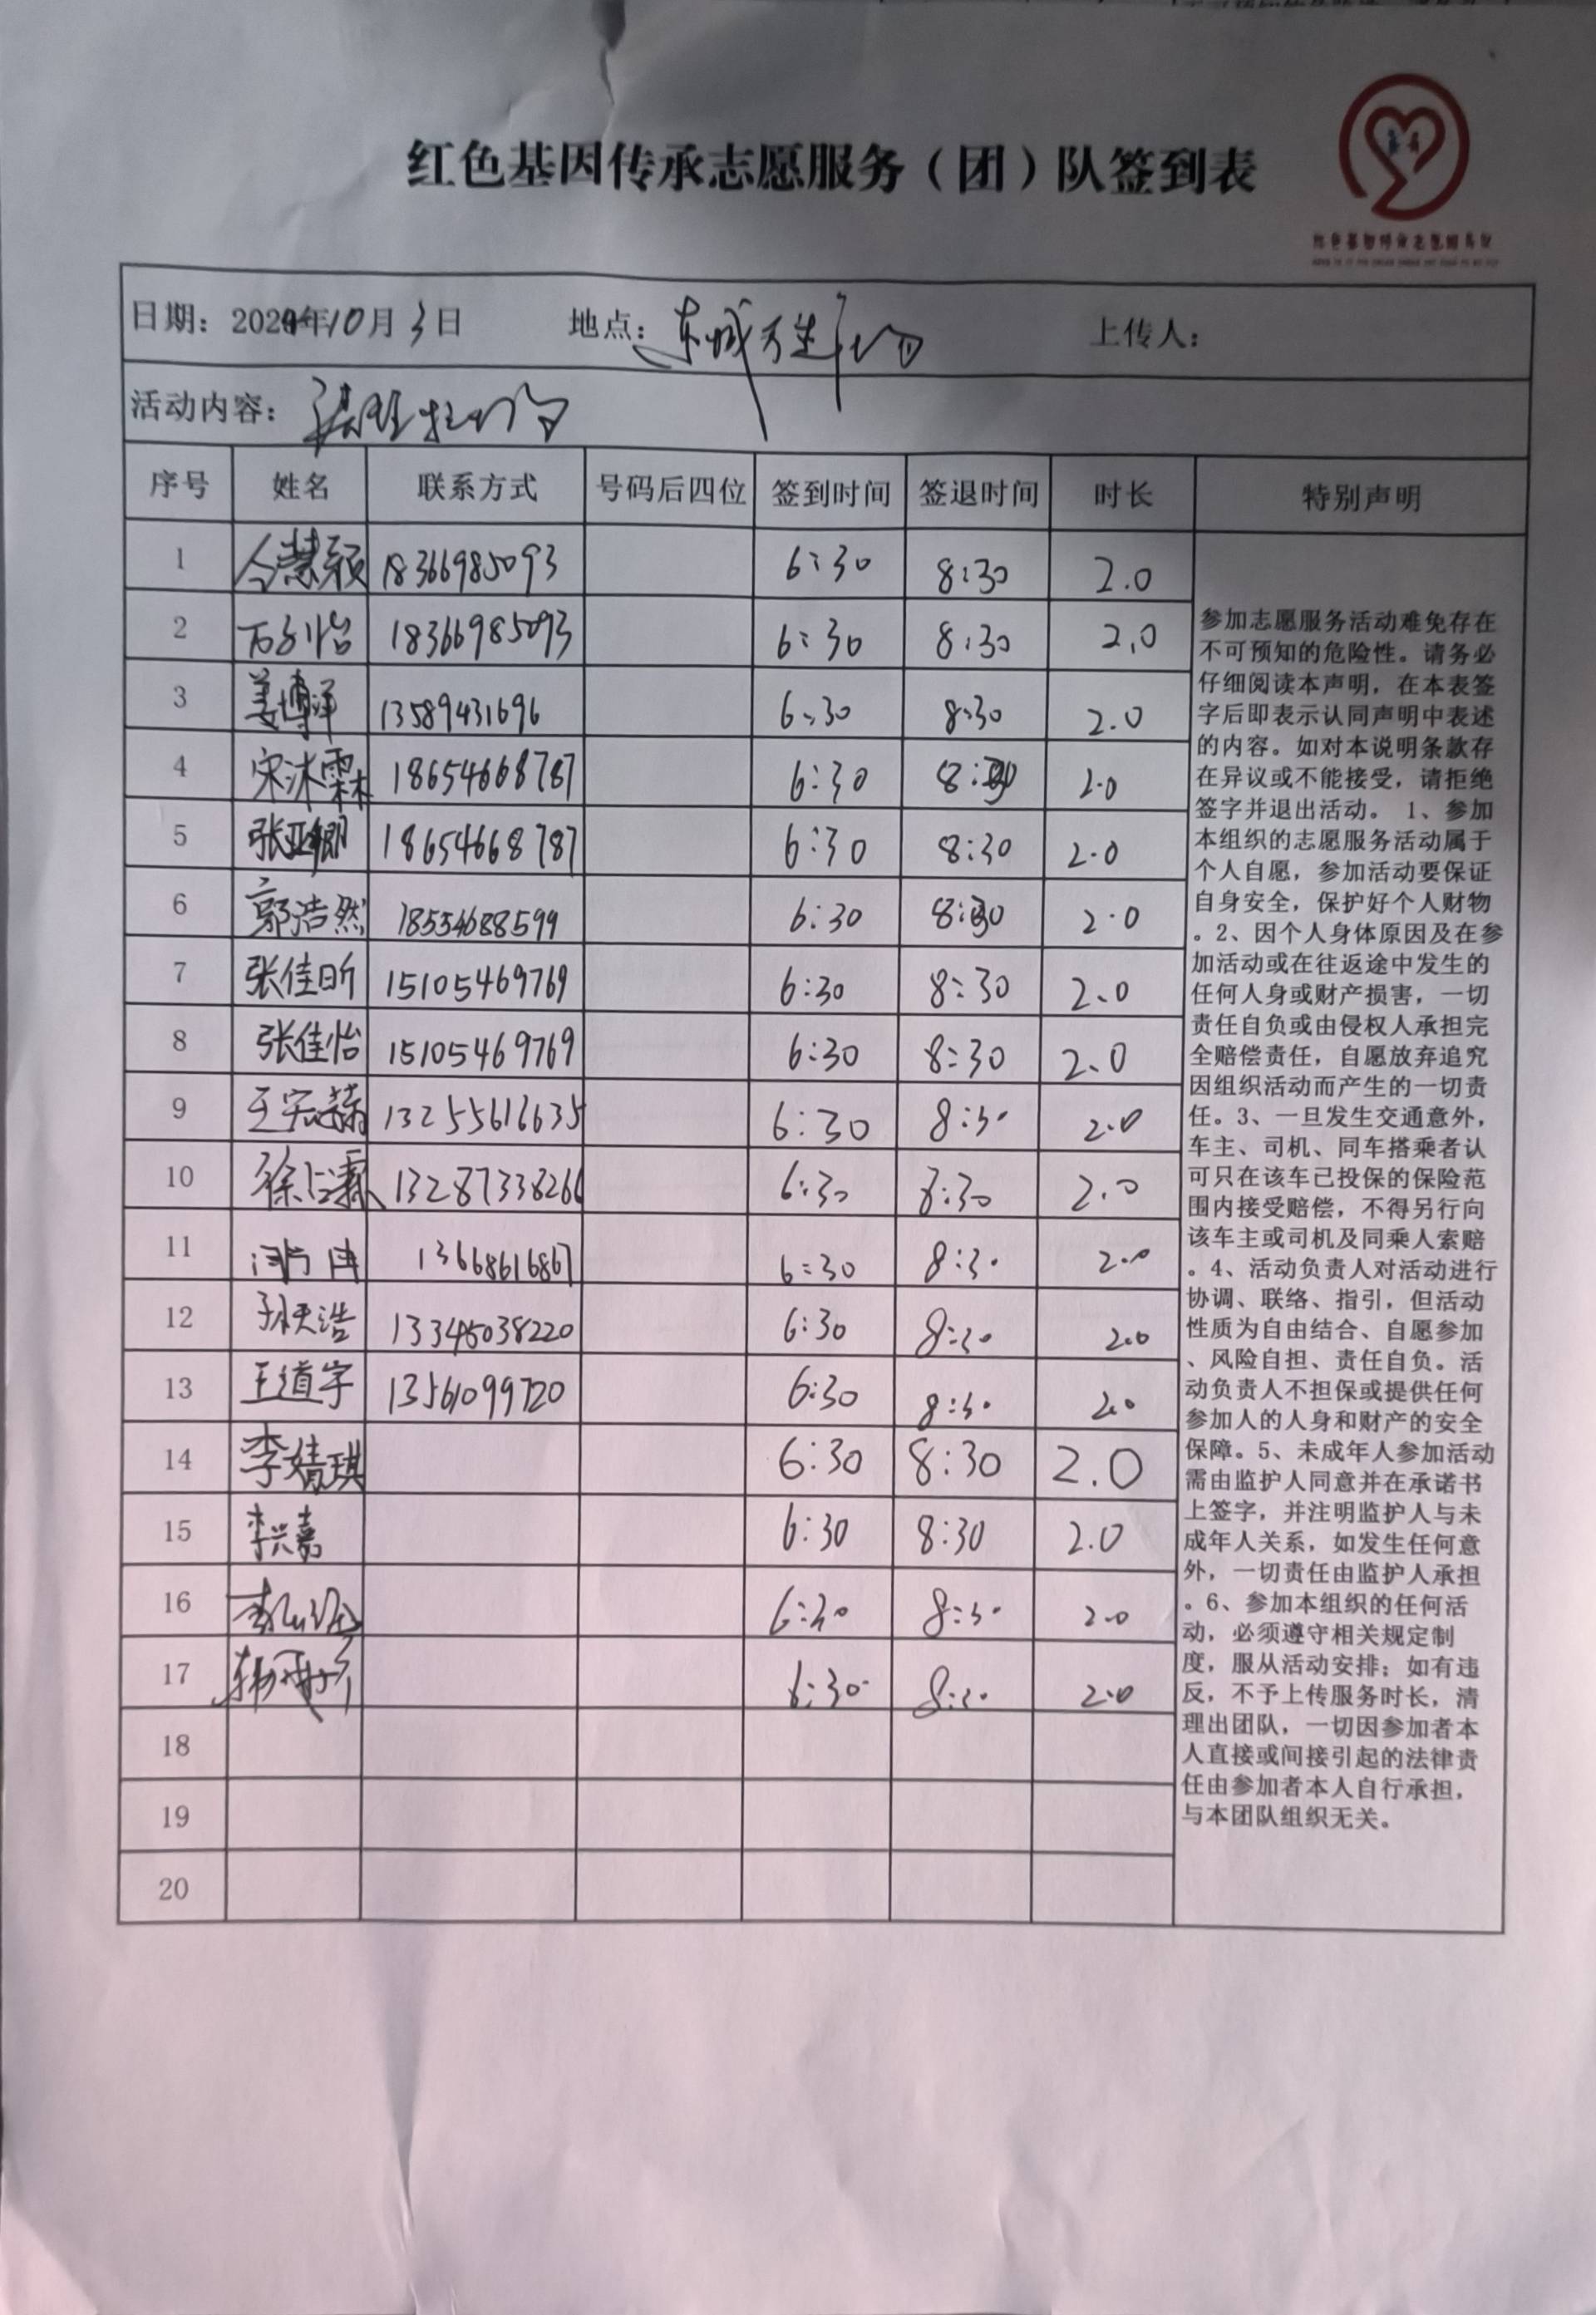 红色基因传承志愿服务（团）队签到表
日期：202 年10月3日 地点：东城万 上传人：
活动内容：
序号 姓名 联系方式 号码后四位 签到时间 签退时间 时长 特别声明
1 慧颖 18366985093 6:30 8:30 2.0
2 18366985093 6:30 8:30 2.0
3 姜博洋 13589431696 6:30 8:30 2.0
4 宋沐霖 18654668787 6:30 8:30 2.0
5 张亚卿 18654668787 6:30 8:30 2.0
6 郭浩然 18554688599 6:30 8:30 2.0
7 张佳昕 15105469769 6:30 8:30 2.0
8 张佳怡 15105469769 6:30 8:30 2.0
9 王 13255616635 6:30 8:30 2.0
10 徐 13287338266 6:30 8:30 2.0
11 13668616867 6:30 8:30 2.0
12 浩 6:30 8:30 2.0
13 王道宇 13561099720 6:30 8:30 2.0
14 李婧琪 6:30 8:30 2.0
15 李兴嘉 6:30 8:30 2.0
16 6:30 8:30 2.0
17 6:30 8:30 2.0
18
19
20
参加志愿服务活动难免存在
不可预知的危险性。请务必
仔细阅读本声明，在本表签
字后即表示认同声明中表述
的内容。如对本说明条款存
在异议或不能接受，请拒绝
签字并退出活动。 1、参加
本组织的志愿服务活动属于
个人自愿，参加活动要保证
自身安全，保护好个人财物
。2、因个人身体原因及在参
加活动或在往返途中发生的
任何人身或财产损害，一切
责任自负或由侵权人承担完
全赔偿责任，自愿放弃追究
因组织活动而产生的一切责
任。3、一旦发生交通意外，
车主、司机、同车搭乘者认
可只在该车已投保的保险范
围内接受赔偿，不得另行向
该车主或司机及同乘人索赔
。4、活动负责人对活动进行
协调、联络、指引，但活动
性质为自由结合、自愿参加
、风险自担、责任自负。活
动负责人不担保或提供任何
参加人的人身和财产的安全
保障。5、未成年人参加活动
需由监护人同意并在承诺书
上签字，并注明监护人与未
成年人关系，如发生任何意
外，一切责任由监护人承担
。6、参加本组织的任何活
动，必须遵守相关规定制
度，服从活动安排；如有违
反，不予上传服务时长，清
理出团队，一切因参加者本
人直接或间接引起的法律责
任由参加者本人自行承担，
与本团队组织无关。